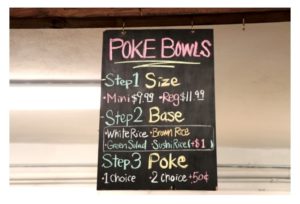 POKE BOWLS
Step 1 Size
• Mini $9.99 • Reg $11.99
Step 2 Base
• White Rice • Brown Rice
• Green Salad • Sushi Rice (+$1)
Step 3 Poke
• 1 Choice • 2 Choice +50¢